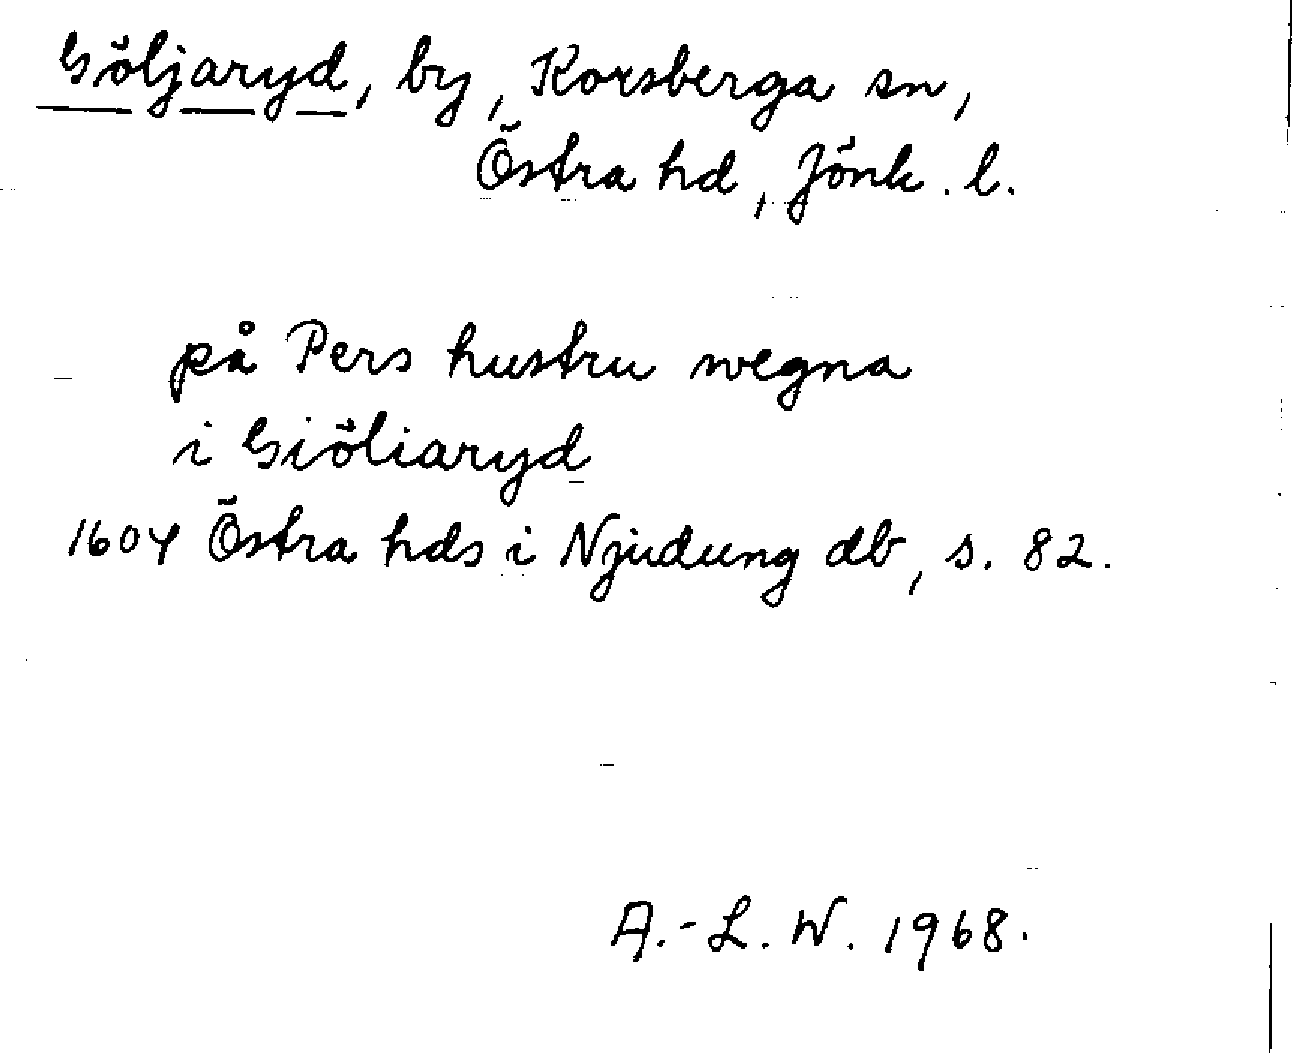 Göljaryd, by, Korsberga sn,
Östra hd, Jönk. l.
på Pers hustru wegna
i Giöliaryd
1604 Östra hds i Njudung db, s. 82.
A.-L. W. 1968.